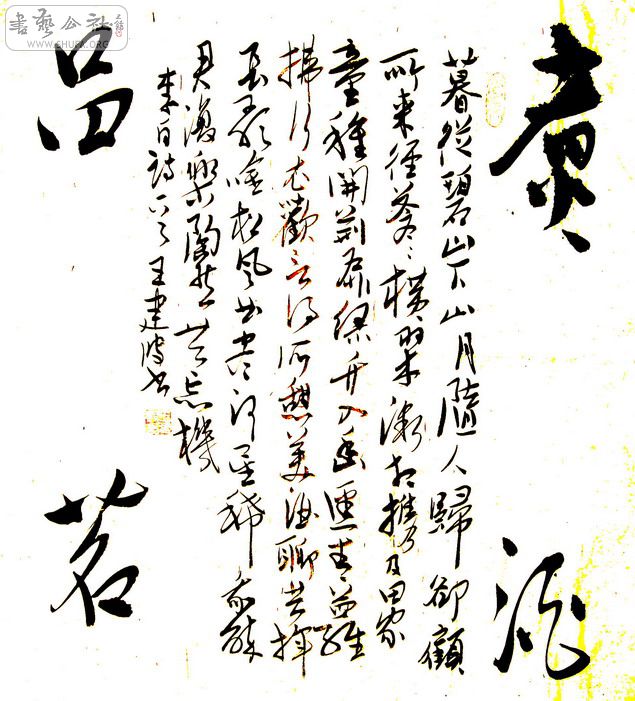 書藝公社
WWW.SHUFA.ORG
煮酒
暮從碧山下山月隨人歸卻顧
所來徑蒼〻橫翠微相攜及田家
童稚開荊扉綠竹入幽徑青蘿
拂行衣歡言得所憩美酒聊共揮
長歌吟松風曲盡河星稀我醉
君復樂陶然共忘機
李白詩 王建波書
品茗